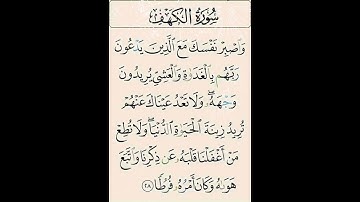 سُورَةُ الكَهْفِ
وَٱصْبِرْ نَفْسَكَ مَعَ ٱلَّذِينَ يَدْعُونَ
رَبَّهُم بِٱلْغَدَوٰةِ وَٱلْعَشِىِّ يُرِيدُونَ
وَجْهَهُۥ ۖ وَلَا تَعْدُ عَيْنَاكَ عَنْهُمْ
تُرِيدُ زِينَةَ ٱلْحَيَوٰةِ ٱلدُّنْيَا ۖ وَلَا تُطِعْ
مَنْ أَغْفَلْنَا قَلْبَهُۥ عَن ذِكْرِنَا وَٱتَّبَعَ
هَوَىٰهُ وَكَانَ أَمْرُهُۥ فُرُطًا ٢٨